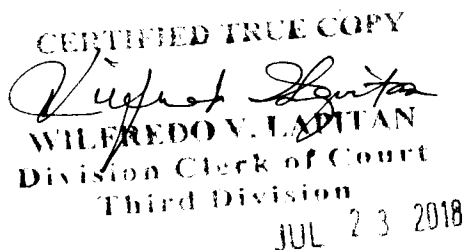 CERTIFIED TRUE COPY
WILFREDO V. LAPITAN
Division Clerk of Court
Third Division
JUL 23 2018